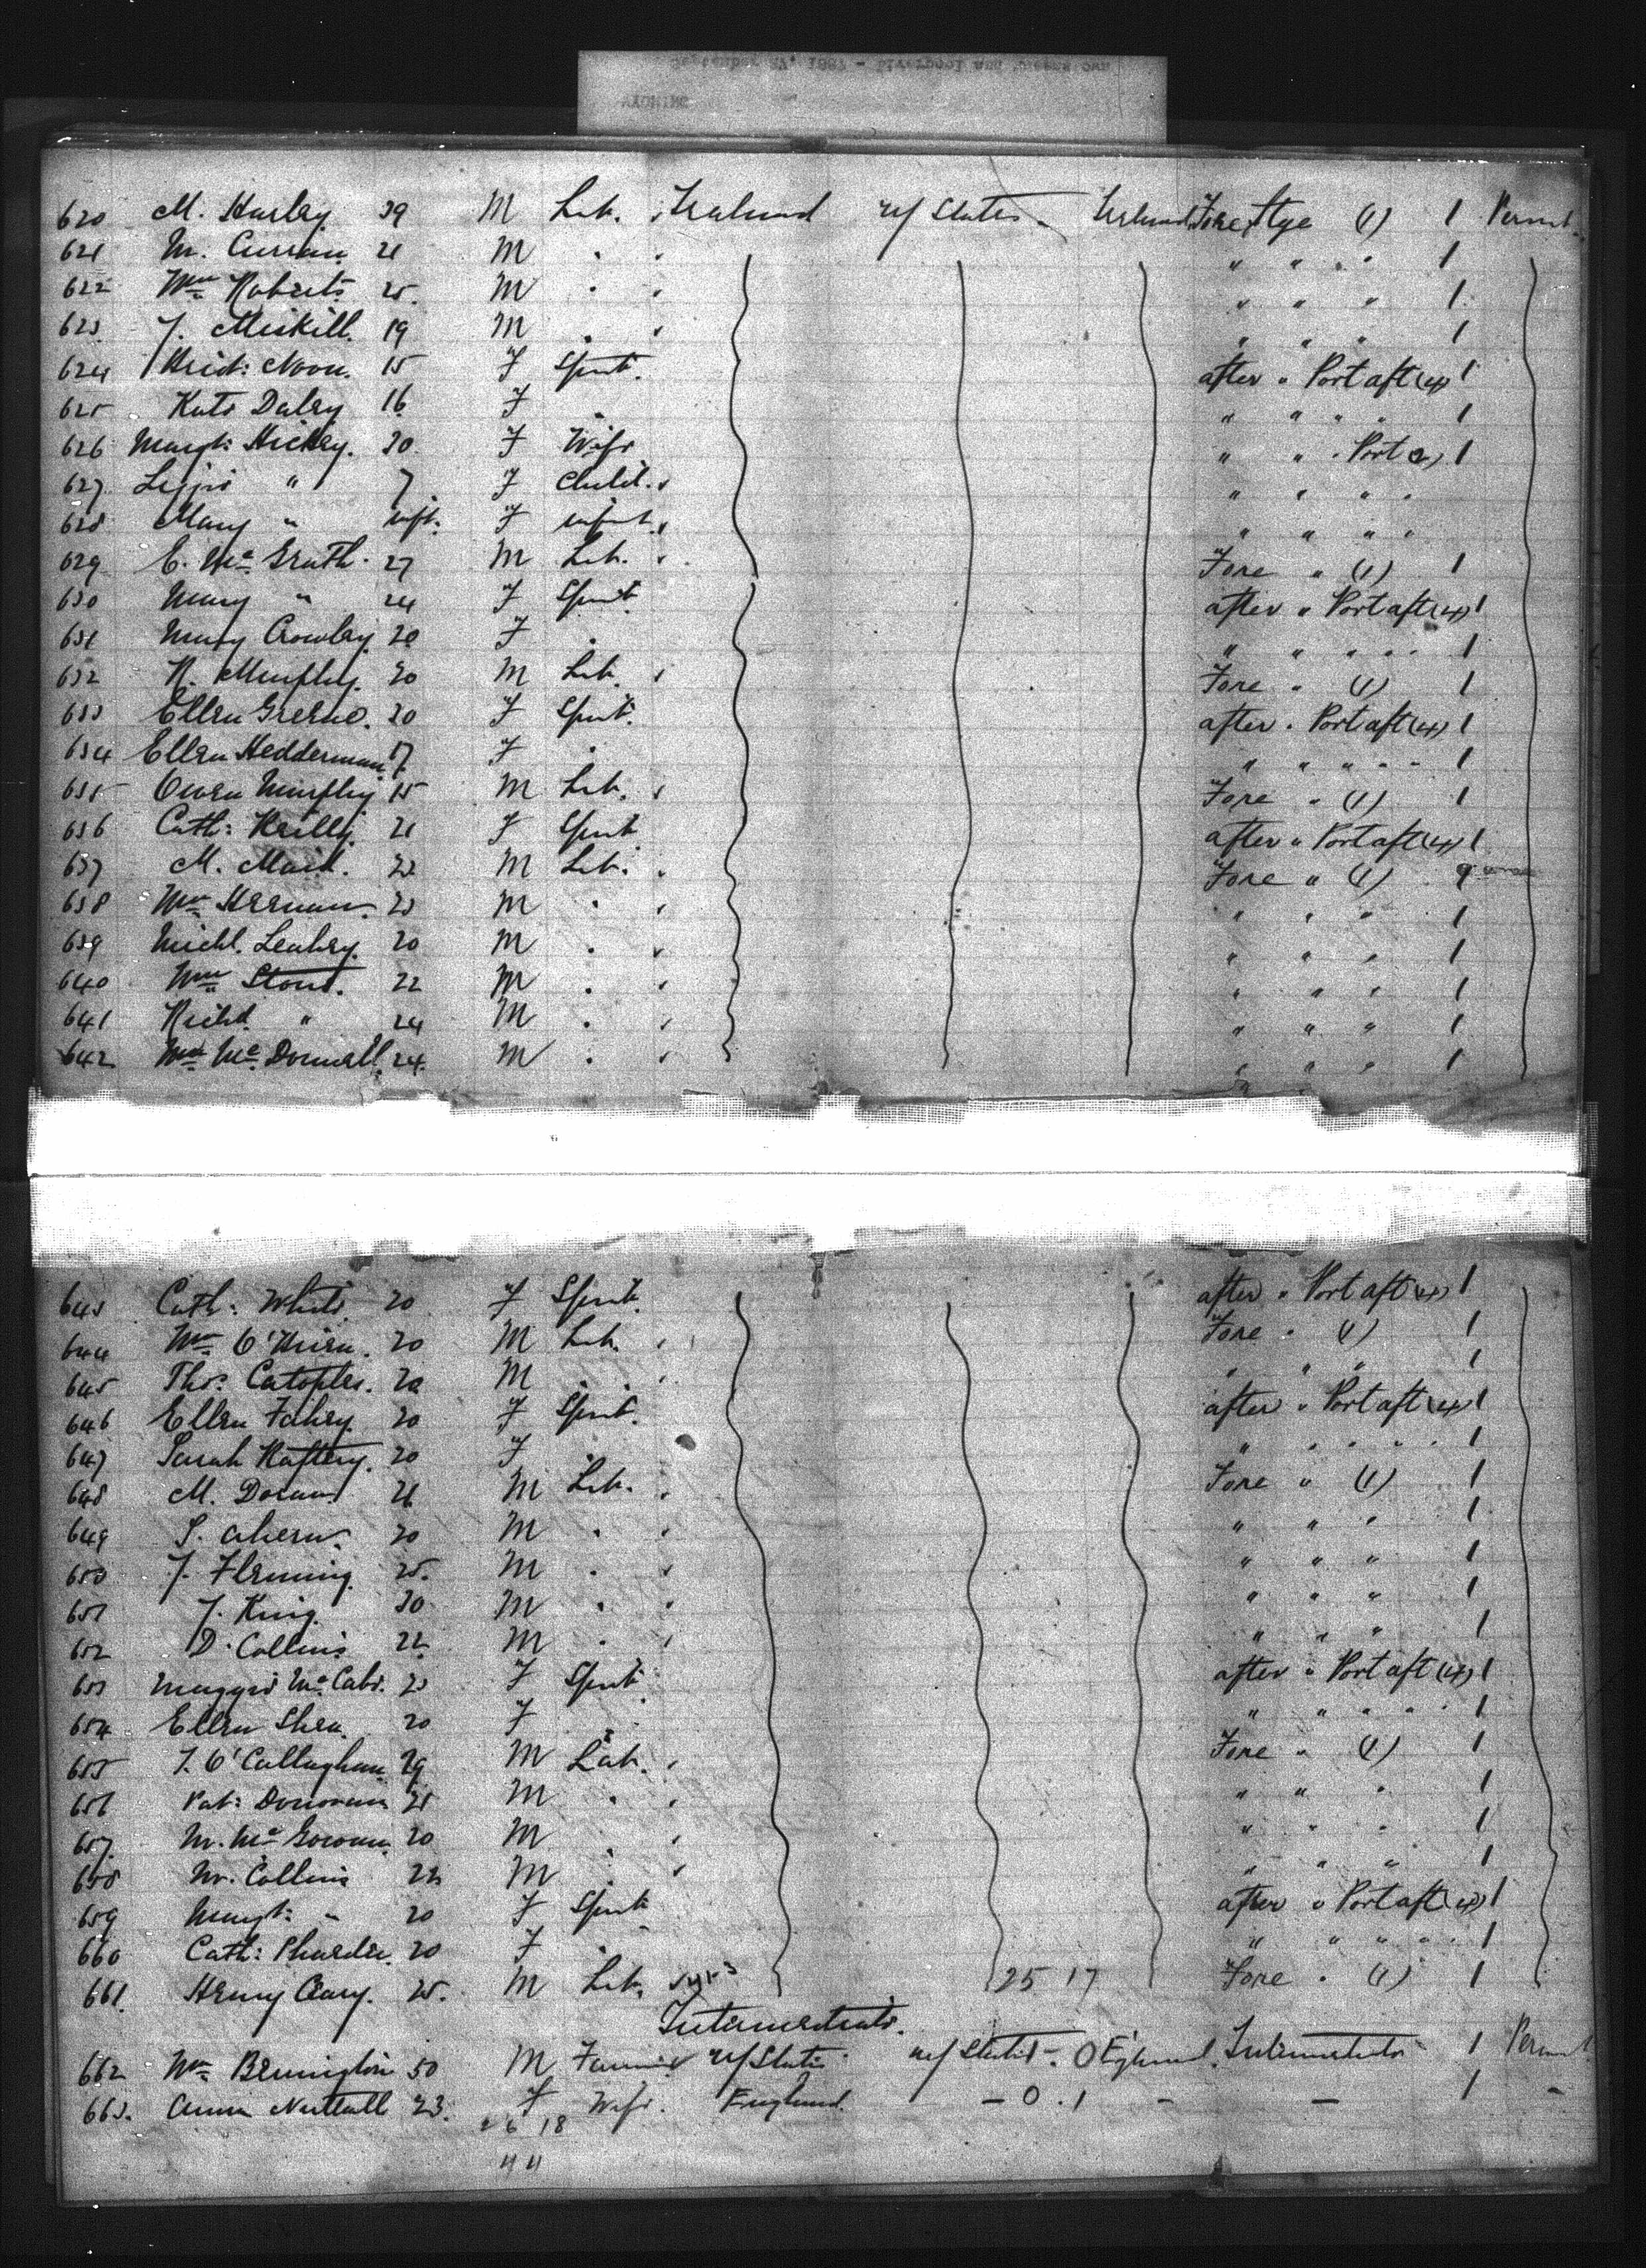 September 27, 1887 - Liverpool and Queenstown
WYOMING
620 M. Hurley 39 M Lab. Ireland u/States Ireland Fore Stge (1) 1 Permt.
621 M. Curran 21 M " " " " " 1
622 Wm Roberts 25. M " " " " " 1
623 J. Miskill. 19 M " " " " " 1
624 Brid: Noon. 15 F Spnt. after " Port aft (4) 1
625 Kate Daley 16 F " " " " " 1
626 Margt: Hickey. 30 F Wife " " Port (2) 1
627 Lizzie " 7 F Child. " " " "
628 Mary " inft. F infant " " " "
629 C. Mc Grath. 27 M Lab. Fore " (1) 1
630 Mary " 24 F Spnt. after " Port aft (4) 1
631 Mary Crowley 20 F " " " " " 1
632 R. Murphy. 20 M Lab. Fore " (1) 1
633 Ellen Greene. 20 F Spnt. after " Port aft (4) 1
634 Ellen Hedderman 17 F " " " " " " 1
635 Owen Murphy 15 M Lab. Fore " (1) 1
636 Cath: Reilly. 21 F Spnt after " Port aft (4) 1
637 M. Maid. 22 M Lab. Fore " (1)
638 Wm Heenan. 23 M " " " " " 1
639 Michl. Leahey. 20 M " " " " " 1
640 Wm Stout. 22 M " " " " " 1
641 Richd. " 24 M " " " " " 1
642 Wm Mc Donnell. 24. M " " " " " 1
643 Cath: White 20 F Spnt. after " Port aft (4) 1
644 Wm O'Hiern. 20 M Lab. Fore " (1) 1
645 Thos. 20 M " " " " 1
646 Ellen Fahey. 20 F Spnt. after " Port aft (4) 1
647 Sarah Raftery. 20 F " " " " " 1
648 M. Doran 21 M Lab. Fore " (1) 1
649 S. Ahern. 20 M " " " " " 1
650 J. Fleming. 25. M " " " " " 1
651 J. King. 30 M " " " " " 1
652 D. Collins 22 M " " " " " 1
653 Maggie Mc Cabe. 23 F Spnt after " Port aft (4) 1
654 Ellen Shea 20 F " " " " " 1
655 T. O'Callaghan 29 M Lab. Fore " (1) 1
656 Pat: Donovan 21 M " " " " " 1
657. M. Mc Gowan. 20 M " " " " " 1
658 M. Collins 22 M " " " " " 1
659 Margt: " 20 F Spnt after " Port aft (4) 1
660 Cath: 20 F " " " " " 1
661. Henry Cary. 25. M Lab. 25 17 Fore " (1) 1
Intermediate.
662 Wm Bennington 50 M Farmer u/States u/States - O England. Intermediate 1 Permt.
663. Anna Nuttall 23. F Wife. England. - 0 . 1 - - 1 -
6 18
11 11